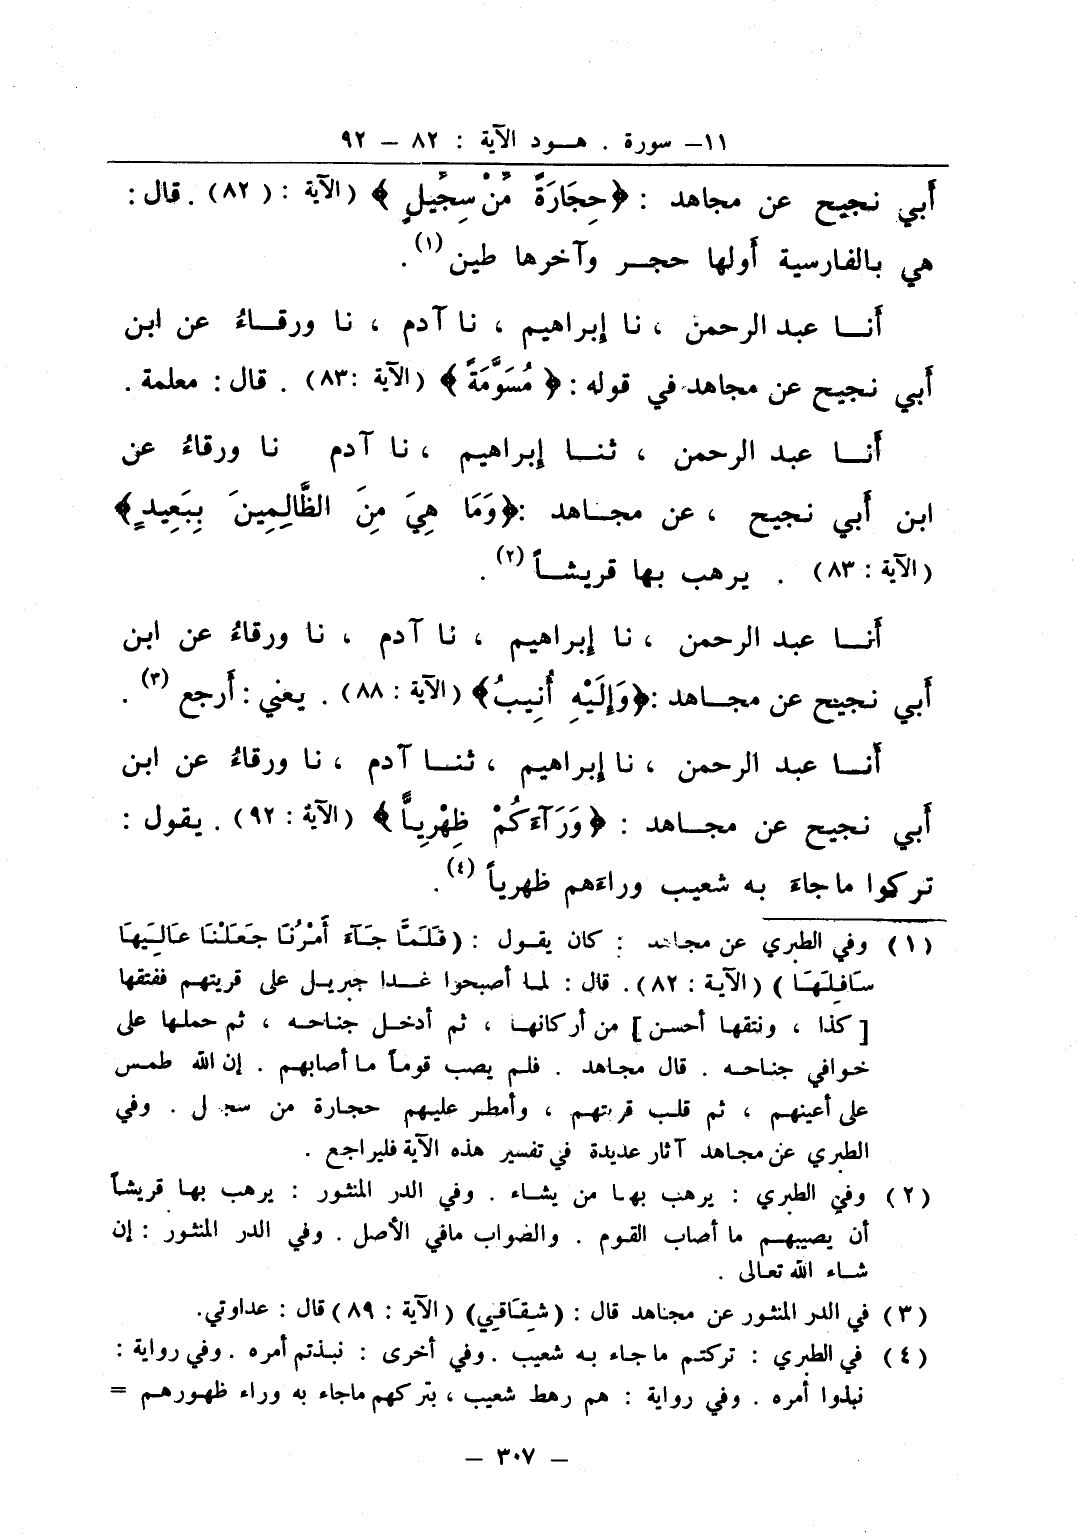 ١١– سورة . هود الآية : ٨٢ – ٩٢
أَبي نجيح عن مجاهد : ﴿حِجَارَةً مِّنْ سِجِّيلٍ ﴾ (الآية : ( ٨٢) . قال :
هي بالفارسية أَولها حجر وآخرها طين (١) .
أَنا عبد الرحمن ، نا إبراهيم ، نا آدم ، نا ورقاءُ عن ابن
أَبي نجيح عن مجاهد في قوله : ﴿ مُسَوَّمَةً ﴾ (الآية :٨٣) . قال : معلمة .
أَنا عبد الرحمن ، ثنا إبراهيم ، نا آدم نا ورقاءُ عن
ابن أَبي نجيح ، عن مجاهد :﴿وَمَا هِيَ مِنَ الظَّالِمِينَ بِبَعِيدٍ﴾
(الآية : ٨٣) . يرهب بها قريشاً (٢) .
أَنا عبد الرحمن ، نا إبراهيم ، نا آدم ، نا ورقاءُ عن ابن
أَبي نجيح عن مجاهد :﴿وَإِلَيْهِ أُنِيبُ﴾ (الآية : ٨٨) . يعني : أَرجع (٣) .
أَنا عبد الرحمن ، نا إبراهيم ، ثنا آدم ، نا ورقاءُ عن ابن
أَبي نجيح عن مجاهد : ﴿ وَرَآءَكُمْ ظِهْرِيّاً ﴾ (الآية : ٩٢) . يقول :
تركوا ما جاءَ به شعيب وراءَهم ظهرياً (٤) .
(١) وفي الطبري عن مجاهد : كان يقول : (فَلَمَّا جَآءَ أَمْرُنَا جَعَلْنَا عَالِيَهَا
سَافِلَهَا ) (الآية : ٨٢). قال : لما أصبحوا غدا جبريل على قريتهم ففتقها
[ كذا ، ونتقها أحسن ] من أركانها ، ثم أدخل جناحه ، ثم حملها على
خوافي جناحه . قال مجاهد . فلم يصب قوماً ما أصابهم . إن الله طمس
على أعينهم ، ثم قلب قريتهم ، وأمطر عليهم حجارة من سجيل . وفي
الطبري عن مجاهد آثار عديدة في تفسير هذه الآية فليراجع .
(٢) وفي الطبري : يرهب بها من يشاء . وفي الدر المنثور : يرهب بها قريشاً
أن يصيبهم ما أصاب القوم . والضواب مافي الأصل . وفي الدر المنثور : إن
شاء الله تعالى .
(٣) في الدر المنثور عن مجاهد قال : (شِقَاقِي) (الآية : ٨٩) قال : عداوتي.
(٤) في الطبري : تركتم ما جاء به شعيب . وفي أخرى : نبذتم أمره . وفي رواية :
نبذوا أمره . وفي رواية : هم رهط شعيب ، بتركهم ماجاء به وراء ظهورهم =
– ٣٠٧ –